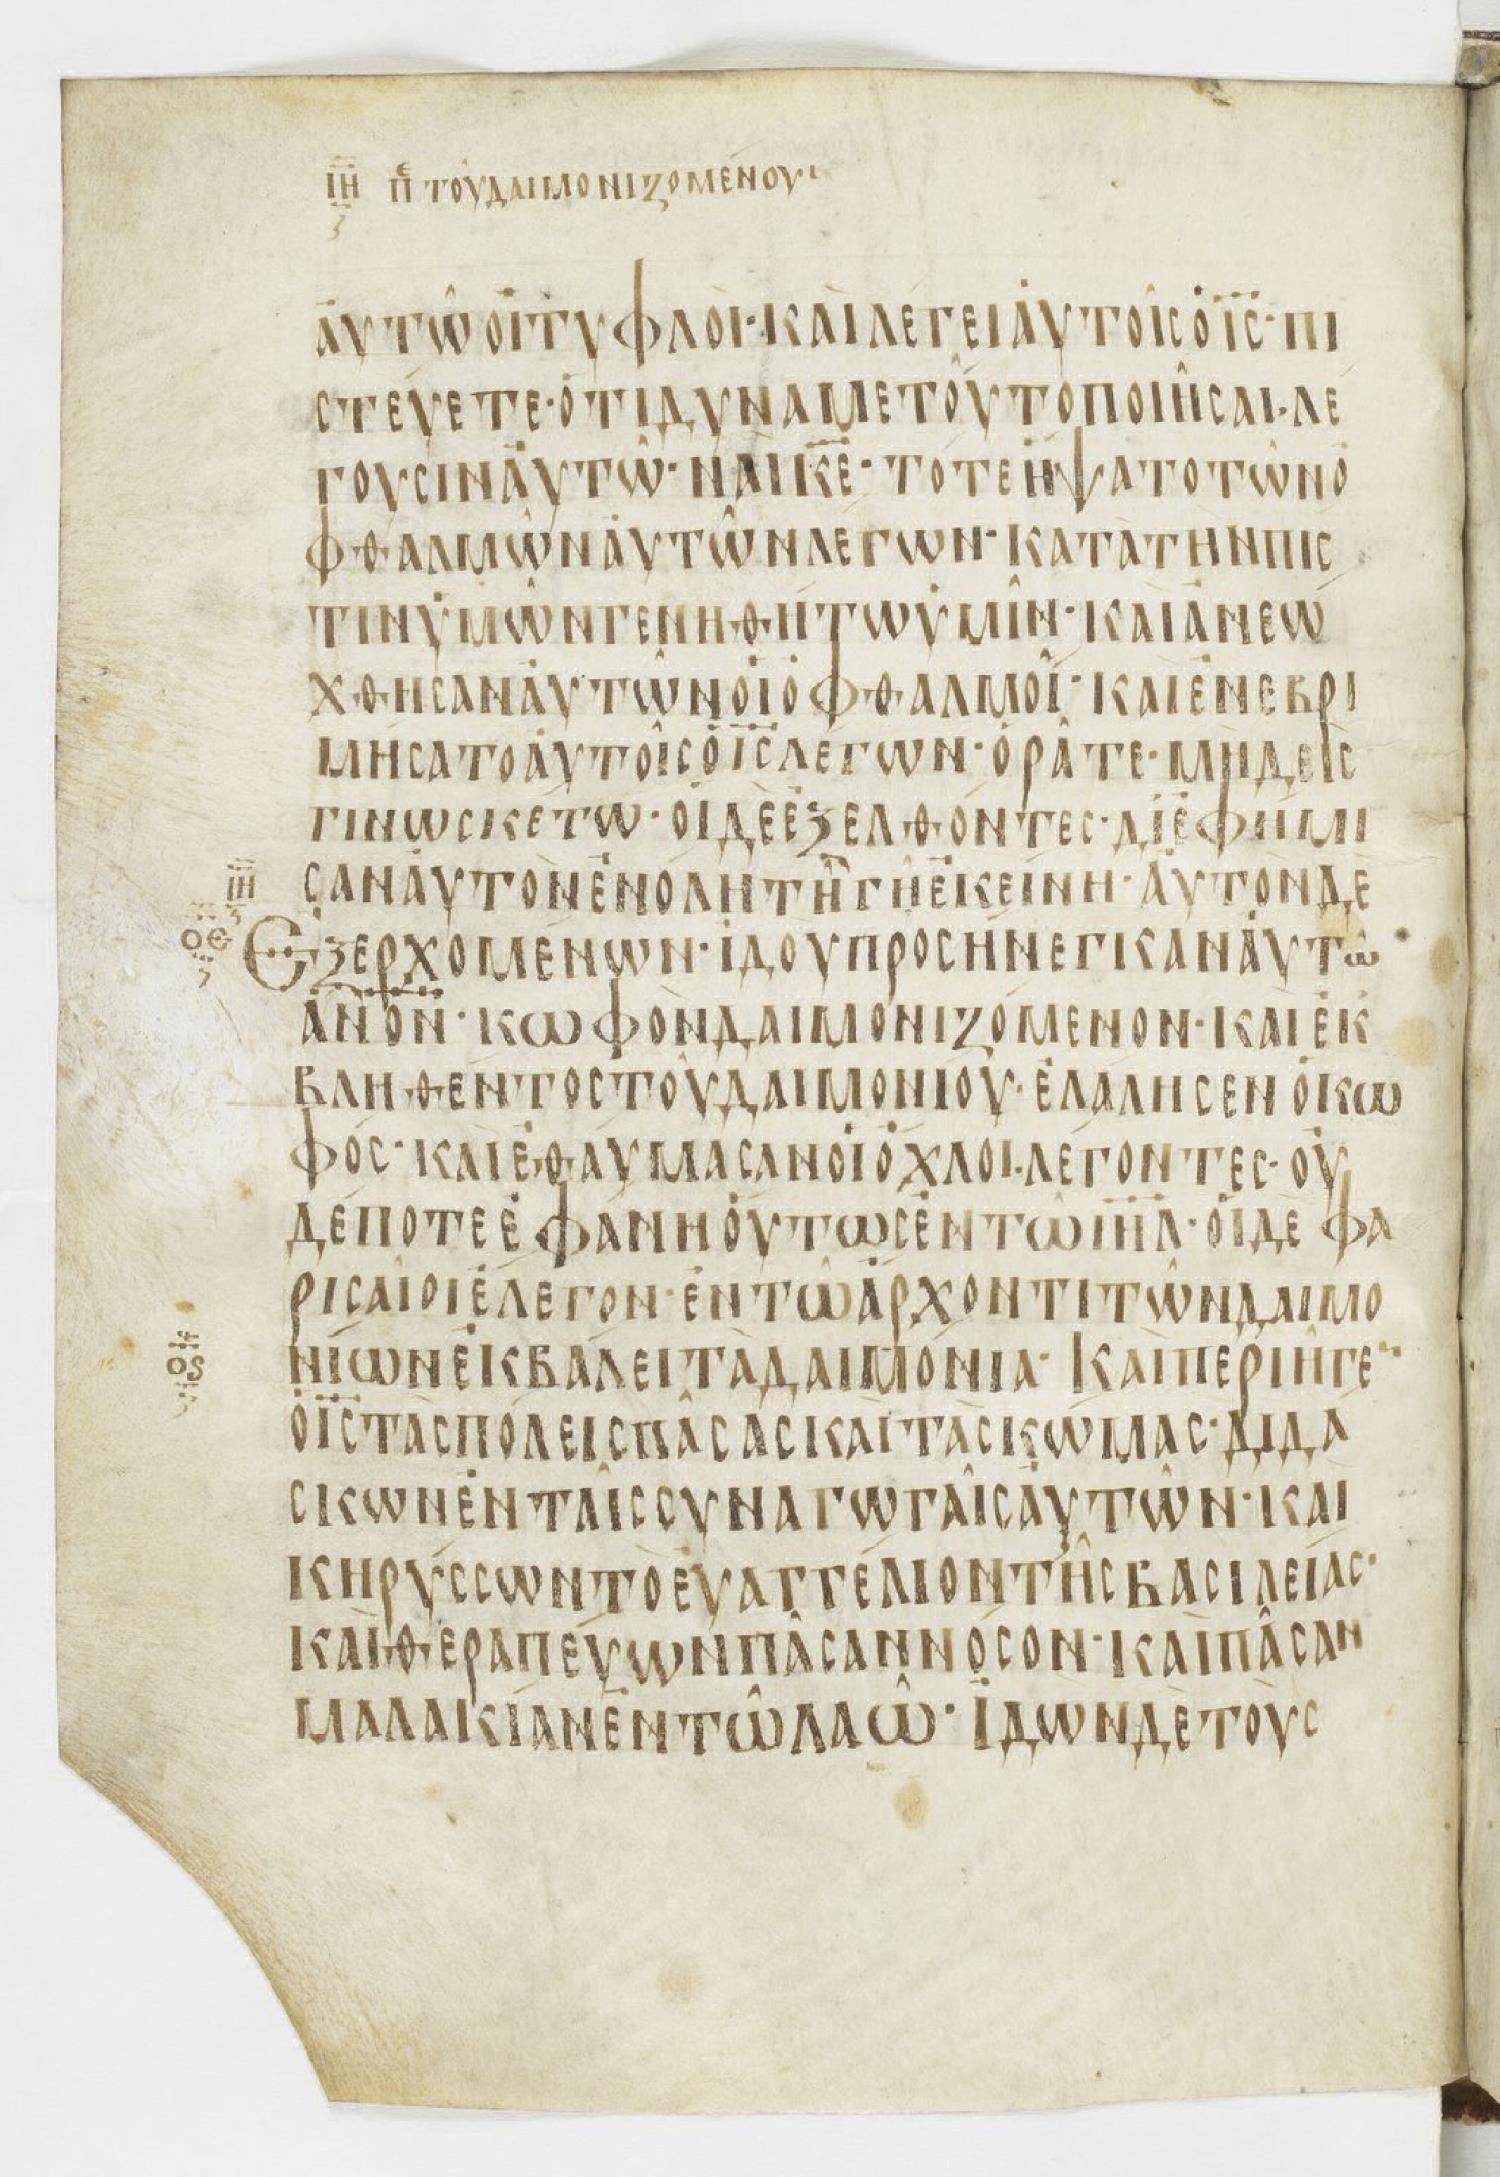 ΙΗ ΠΕ ΤΟΥ ΔΑΙΜΟΝΙΖΟΜΕΝΟΥ
ΑΥΤΩ ΟΙ ΤΥΦΛΟΙ· ΚΑΙ ΛΕΓΕΙ ΑΥΤΟΙΣ Ο ΙΣ· ΠΙ
ΣΤΕΥΕΤΕ· ΟΤΙ ΔΥΝΑΜΕ ΤΟΥΤΟ ΠΟΙΗΣΑΙ· ΛΕ
ΓΟΥΣΙΝ ΑΥΤΩ· ΝΑΙ ΚΕ· ΤΟΤΕ ΗΨΑΤΟ ΤΩΝ Ο
ΦΘΑΛΜΩΝ ΑΥΤΩΝ ΛΕΓΩΝ· ΚΑΤΑ ΤΗΝ ΠΙΣ
ΤΙΝ ΥΜΩΝ ΓΕΝΗΘΗΤΩ ΥΜΙΝ· ΚΑΙ ΑΝΕΩ
ΧΘΗΣΑΝ ΑΥΤΩΝ ΟΙ ΟΦΘΑΛΜΟΙ· ΚΑΙ ΕΝΕΒΡΙ
ΜΗΣΑΤΟ ΑΥΤΟΙΣ Ο ΙΣ ΛΕΓΩΝ· ΟΡΑΤΕ· ΜΗΔΕΙΣ
ΓΙΝΩΣΚΕΤΩ· ΟΙ ΔΕ ΕΞΕΛΘΟΝΤΕΣ· ΔΙΕΦΗΜΙ
ΙΗ ΣΑΝ ΑΥΤΟΝ ΕΝ ΟΛΗ ΤΗ ΓΗ ΕΚΕΙΝΗ· ΑΥΤΟΝ ΔΕ
ΟΕ ΕΞΕΡΧΟΜΕΝΩΝ· ΙΔΟΥ ΠΡΟΣΗΝΕΓΚΑΝ ΑΥΤΩ
ΑΝΟΝ· ΚΩΦΟΝ ΔΑΙΜΟΝΙΖΟΜΕΝΟΝ· ΚΑΙ ΕΚ
ΒΛΗΘΕΝΤΟΣ ΤΟΥ ΔΑΙΜΟΝΙΟΥ· ΕΛΑΛΗΣΕΝ Ο ΚΩ
ΦΟΣ· ΚΑΙ ΕΘΑΥΜΑΣΑΝ ΟΙ ΟΧΛΟΙ· ΛΕΓΟΝΤΕΣ· ΟΥ
ΔΕΠΟΤΕ ΕΦΑΝΗ ΟΥΤΩΣ ΕΝ ΤΩ ΙΗΛ· ΟΙ ΔΕ ΦΑ
ΡΙΣΑΙΟΙ ΕΛΕΓΟΝ· ΕΝ ΤΩ ΑΡΧΟΝΤΙ ΤΩΝ ΔΑΙΜΟ
ΟϚ ΝΙΩΝ ΕΚΒΑΛΕΙ ΤΑ ΔΑΙΜΟΝΙΑ· ΚΑΙ ΠΕΡΙΗΓΕΝ
Ο ΙΣ ΤΑΣ ΠΟΛΕΙΣ ΠΑΣΑΣ ΚΑΙ ΤΑΣ ΚΩΜΑΣ· ΔΙΔΑ
ΣΚΩΝ ΕΝ ΤΑΙΣ ΣΥΝΑΓΩΓΑΙΣ ΑΥΤΩΝ· ΚΑΙ
ΚΗΡΥΣΣΩΝ ΤΟ ΕΥΑΓΓΕΛΙΟΝ ΤΗΣ ΒΑΣΙΛΕΙΑΣ·
ΚΑΙ ΘΕΡΑΠΕΥΩΝ ΠΑΣΑΝ ΝΟΣΟΝ· ΚΑΙ ΠΑΣΑΝ
ΜΑΛΑΚΙΑΝ ΕΝ ΤΩ ΛΑΩ· ΙΔΩΝ ΔΕ ΤΟΥΣ